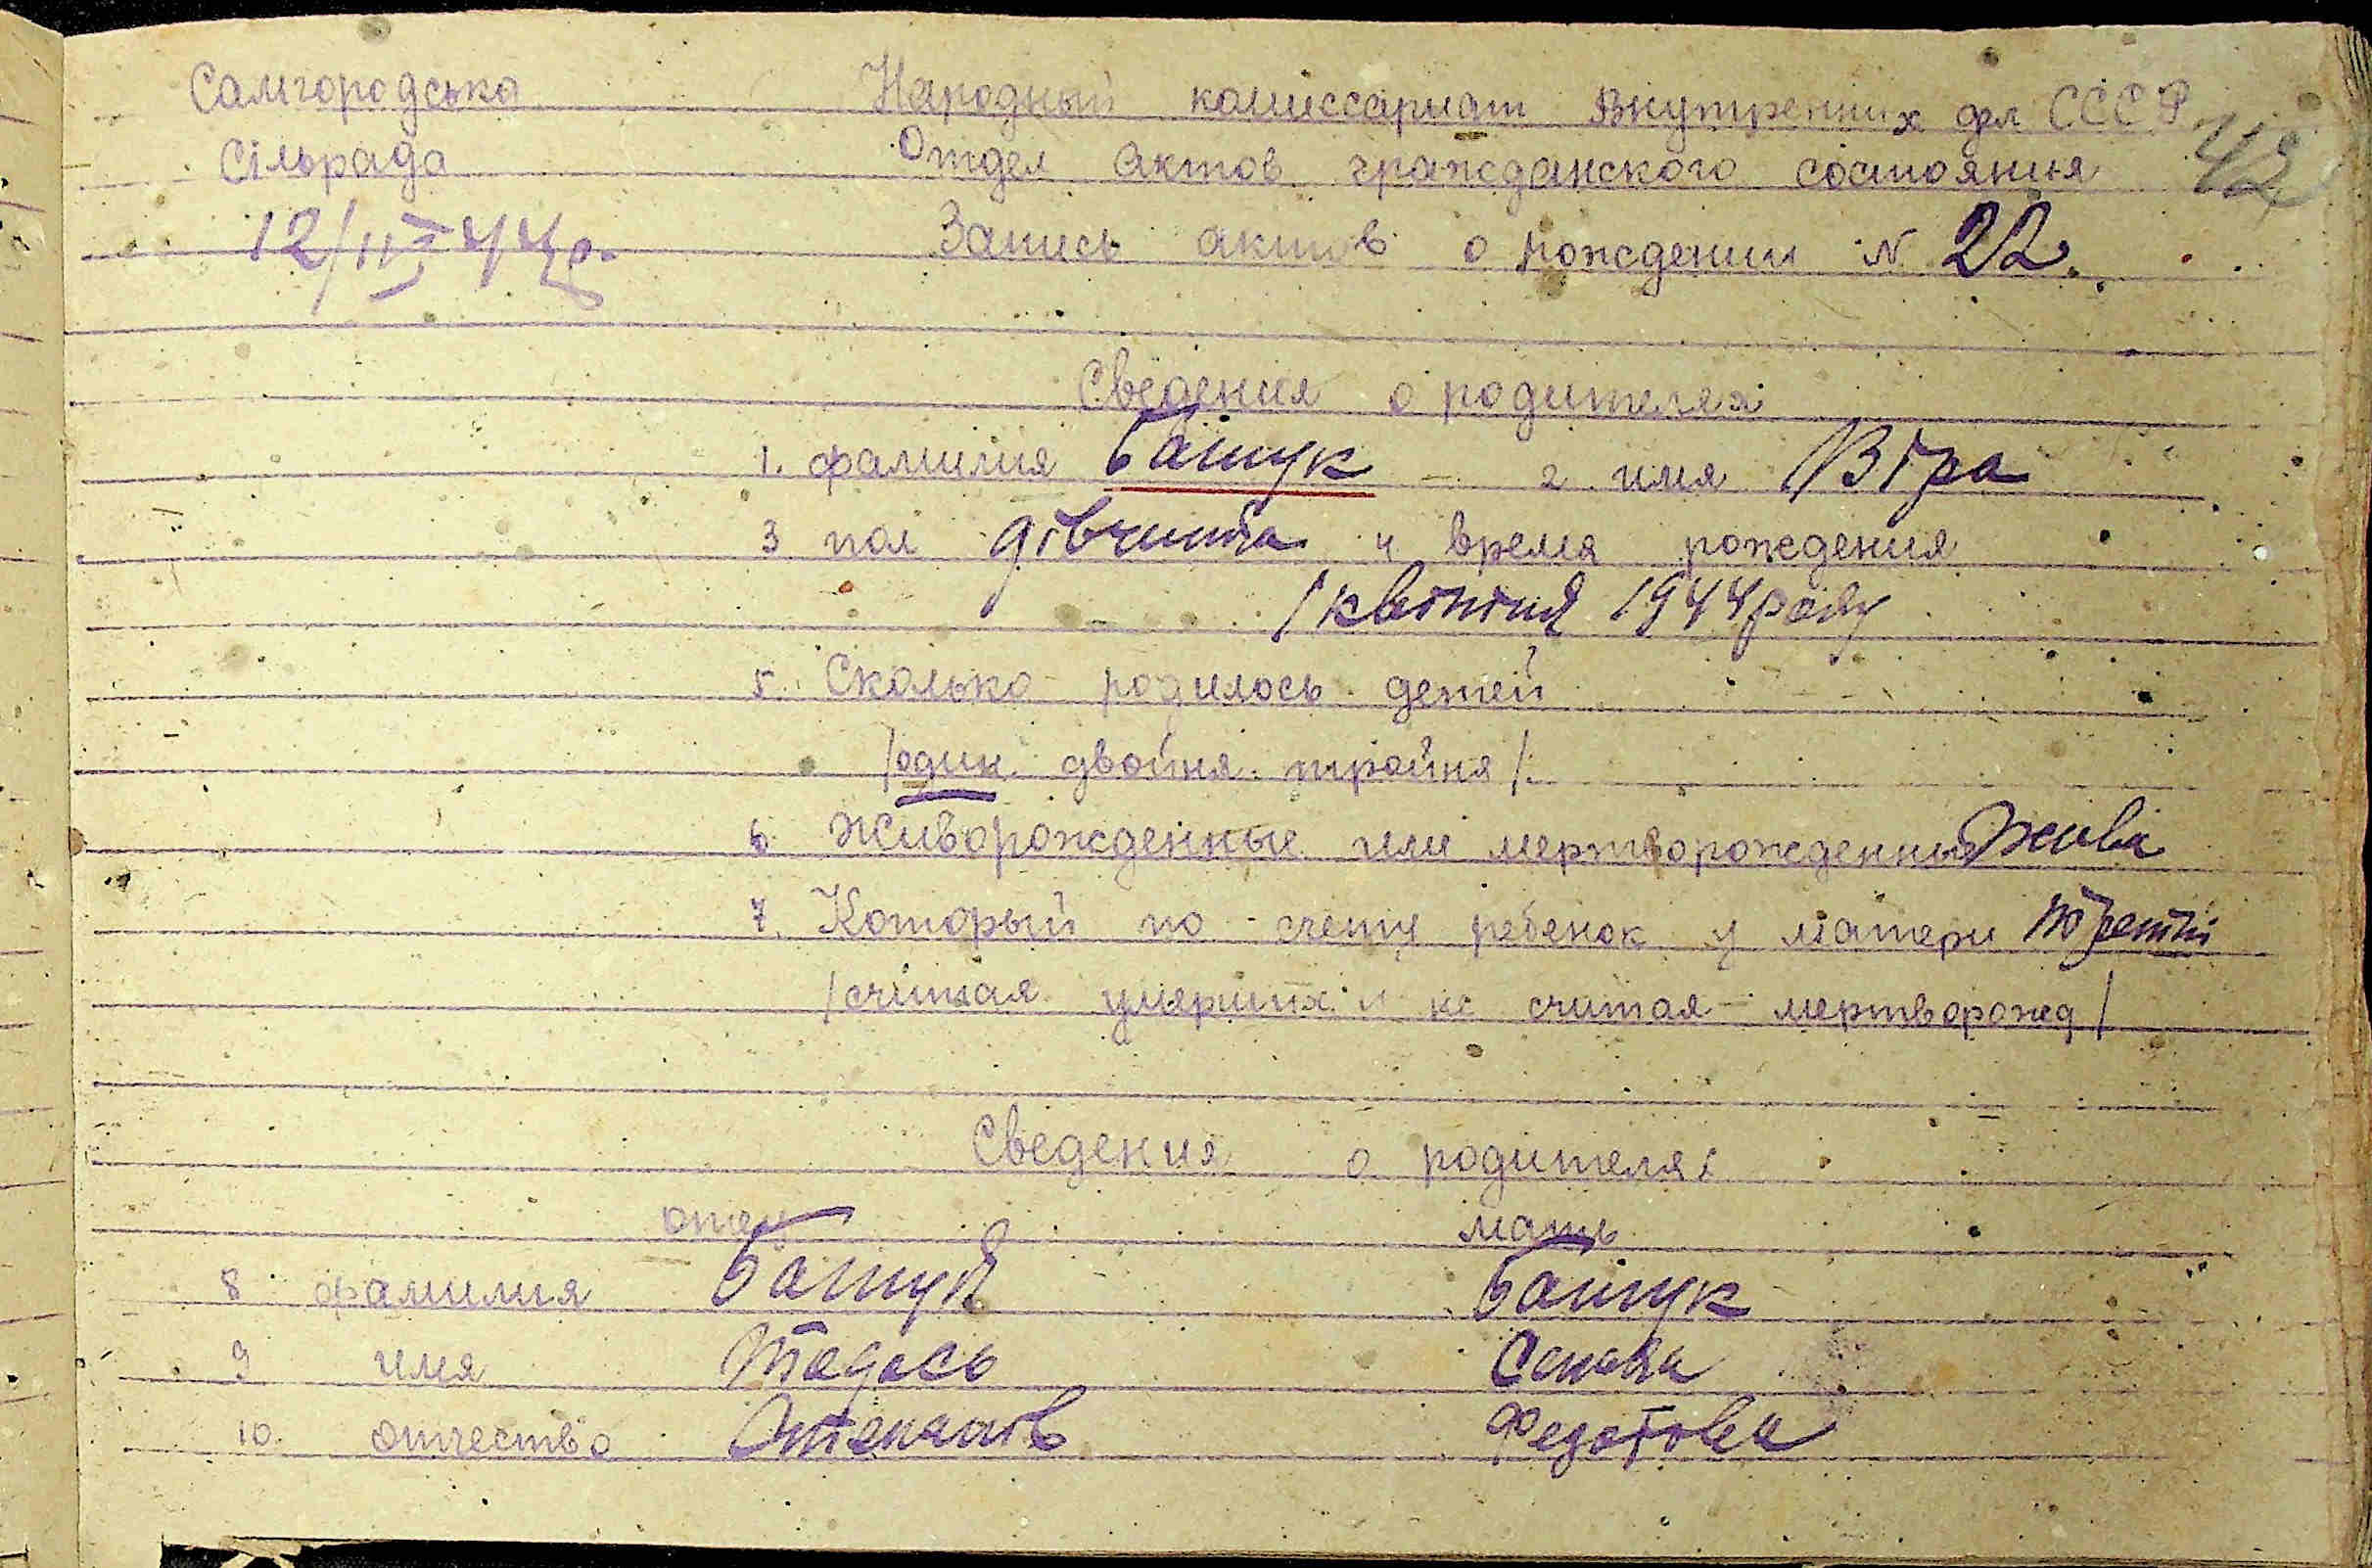 Самгородська Народный комиссариат Внутренних дел СССР
Сільрада Отдел Актов гражданского состояния 42
12/IV 44 р. Запись актов о рождении N 22.
Сведения о родителях
1. фамилия Башук 2 имя Віра
3 пол дівчина 4 время рождения
1 квітня 1944 року
5. Сколько родилось детей
/один двойня тройня/
6 Живорожденные или мертворожденный жива
7. Который по счету ребенок у матери третій
/считая умерших и не считая мертворожд/
Сведения о родителях
отец мать
8 фамилия Башук Башук
9 имя Тодось
10. отчество Степанов Федотовна